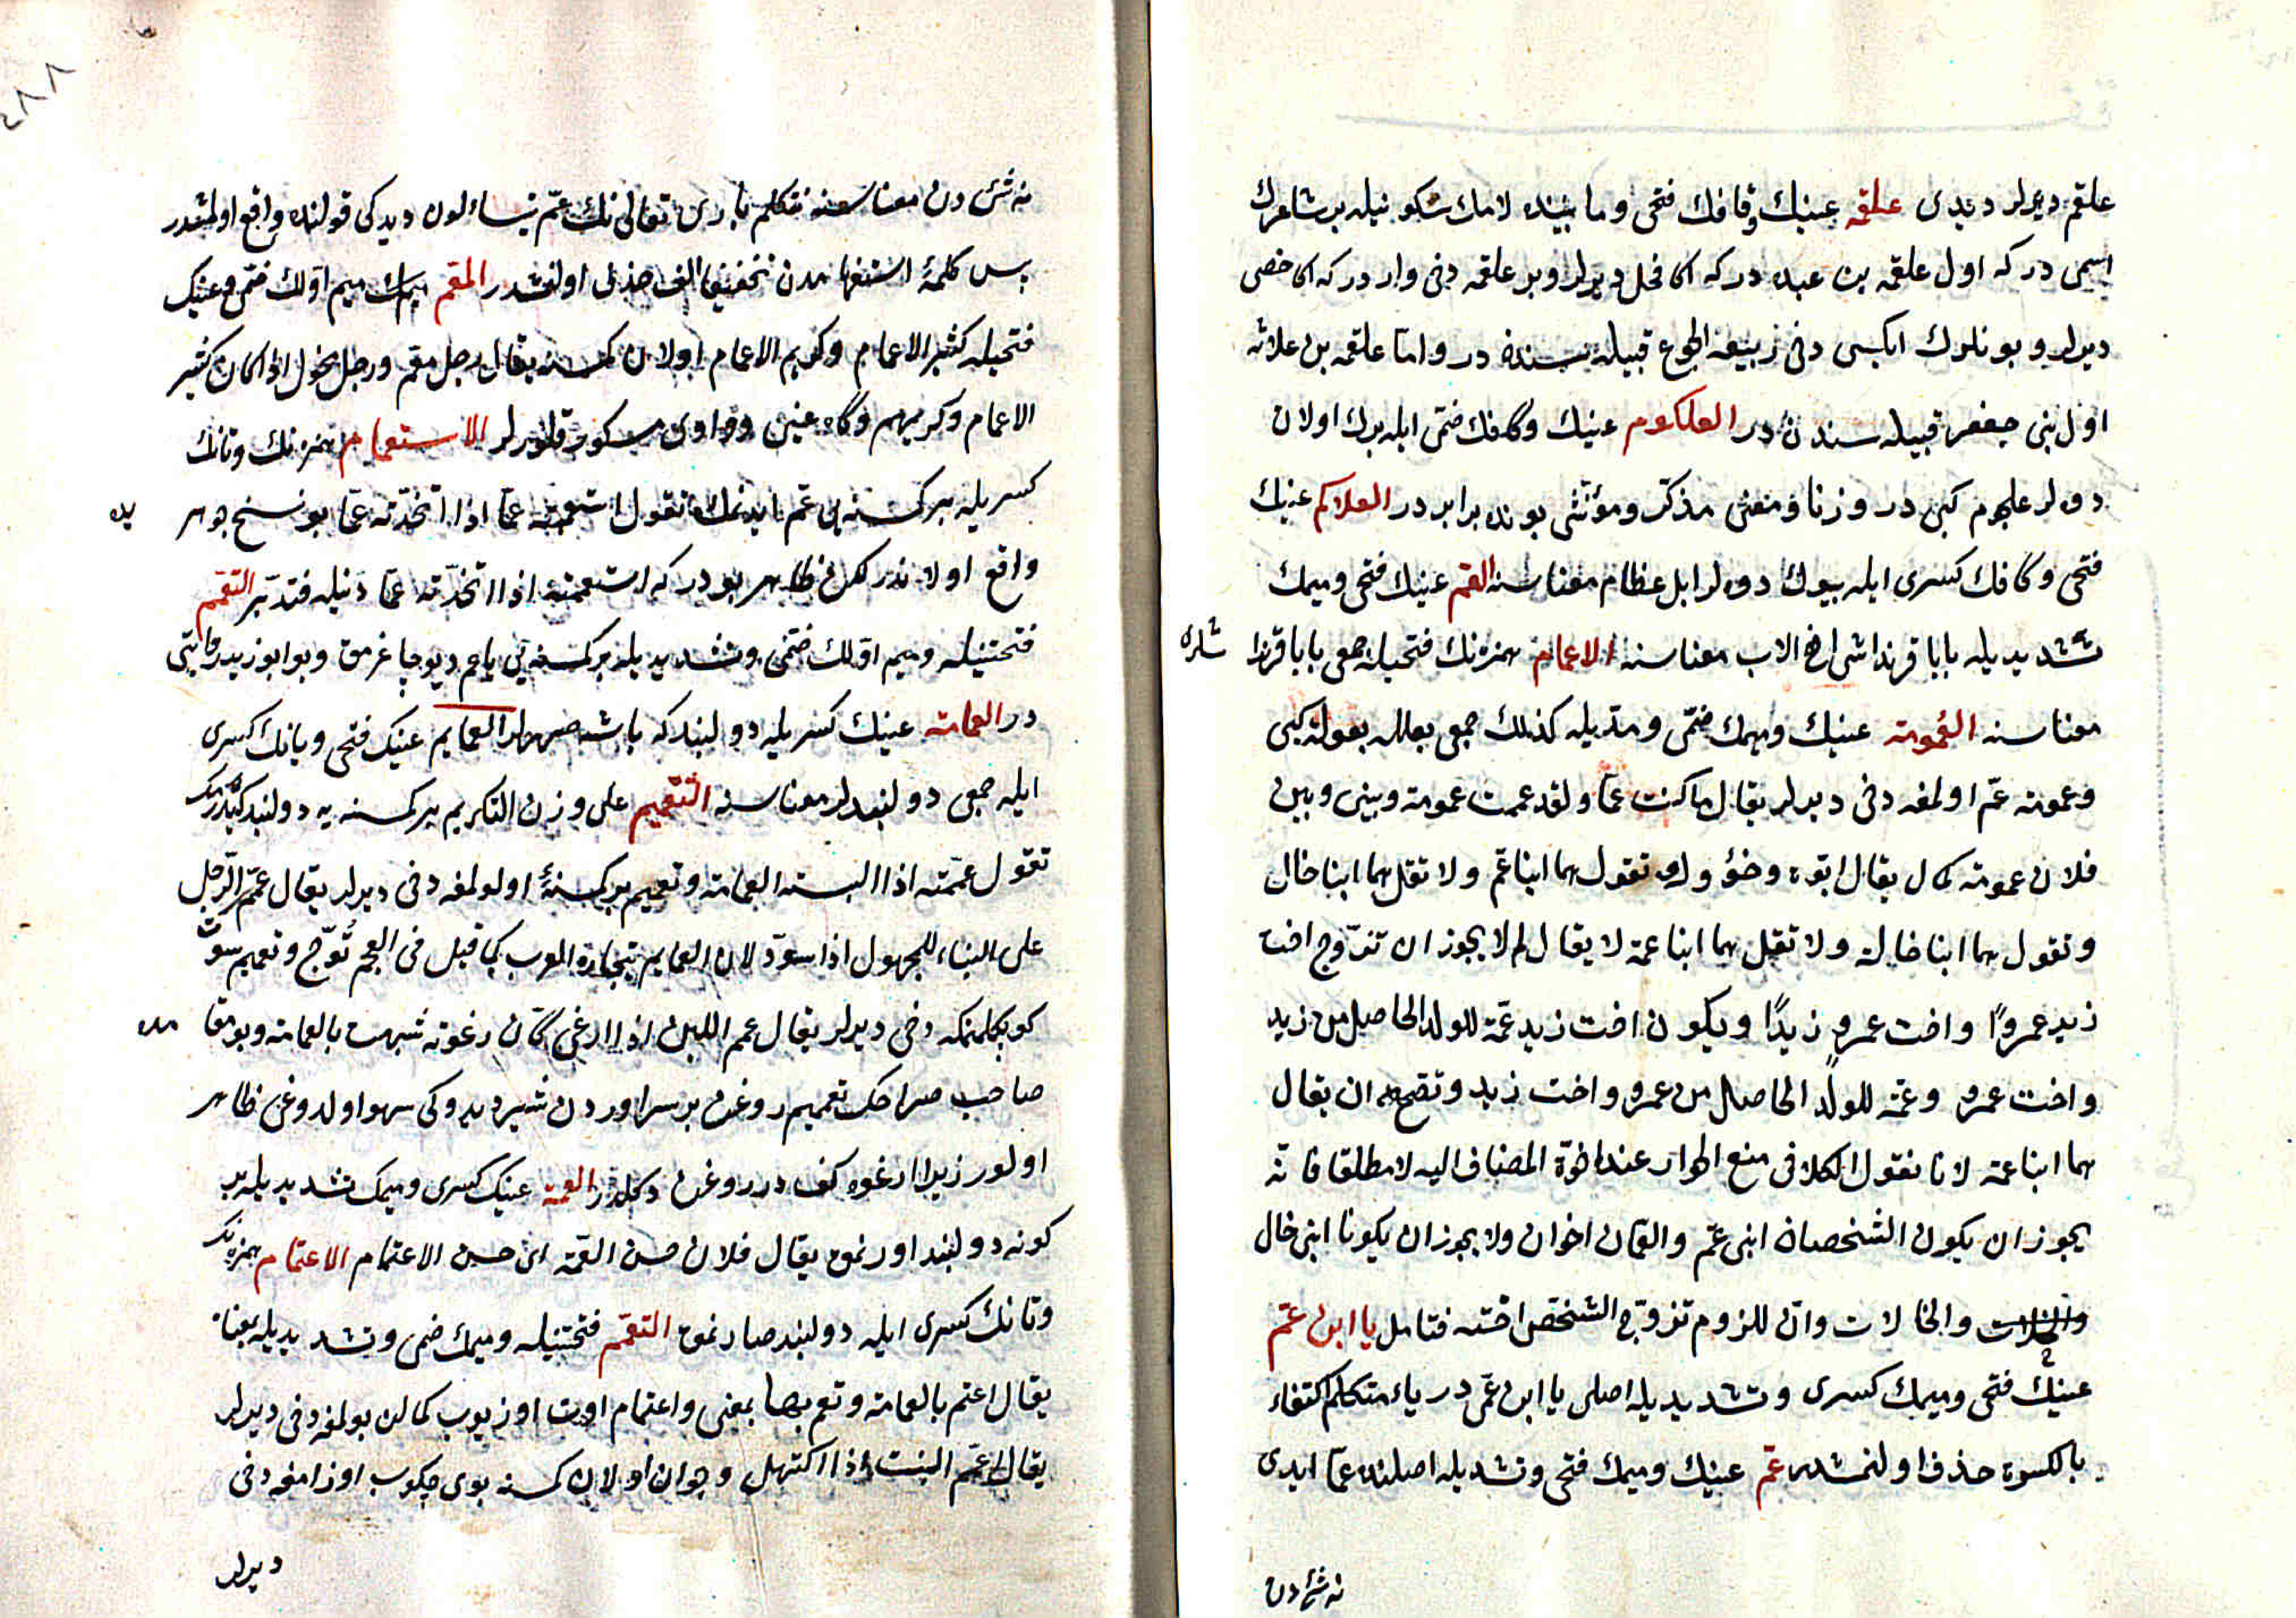 علقم ديرلر ديدى علقمه عينك وقافك فتحى وما بينده لامك سكونيله بر شاعرك
اسمى در كه اول علقمه بن عبده در كه اكا فحل ديرلر وبر علقمه دخى وار در كه اكا خصى
ديرلر وبونلرك ايكسى دخى ربيعة الجوع قبيله سندن در واما علقمه بن علاثه
اول بنى جعفر قبيله سندن در العلكوم عينك وكافك ضمى ايله برك اولان
دوه لر علجوم كبى در وزنا ومعنى مذكر ومؤنثى بونده برابر در العلاكم عينك
فتحى وكافك كسرى ايله بيوك دوه لر ابل عظام معناسنه العم عينك فتحى وميمك
تشديديله بابا قرنداشى اخ الاب معناسنه الاعمام همزه نك فتحيله جمعى بابا قرندا
شلرى
معناسنه العمومة عينك وميمك ضمى ومديله كذلك جمعى بعل بعولة كبى
وعمومة عمّ اولمغه دخى ديرلر يقال ما كنت عمّا ولقد عممت عمومة وبينى وبين
فلان عمومة كما يقال ابوّة وخؤولة وتقول هما ابنا عمّ ولا تقل هما ابنا خال
وتقول هما ابنا خالة ولا تقل هما ابنا عمة لا يقال لم لا يجوز ان تتزوج اخت
زيد عمروًا واخت عمرو زيدًا ويكون اخت زيد عمّة للولد الحاصل من زيد
واخت عمرو وعمّة للولد الحاصل من عمرو واخت زيد وتصح ان يقال
هما ابنا عمة لانا نقول الكلام فى منع الجواز عند اخوة المضاف اليه لا مطلقا فانه
يجوز ان يكون الشخصان ابنى عمّ والعمّان اخوان ولا يجوز ان يكونا ابنى خال
والخالات وان للزوم تزوّج الشخص اخته فتامل يا ابن عمّ
عينك فتحى وميمك كسرى وتشديديله اصلى يا ابن عمّى در ياء متكلم اكتفاء
بالكسرة حذف اولنمشدر عمّ عينك وميمك فتحى وتشديديله اصلنده عمّا ايدى
نه شئ دن
نه شئ دن معناسنه نتكلم بارى تعالى نك عمّ يتساءلون ديدكى قولنده واقع اولمشدر
پس كلمهٔ استفهامدن تخفيفا الف حذف اولنمشدر المعمّ ميمك ميم اوّلك ضمى وعينك
فتحيله كثير الاعمام وكريم الاعمام اولان كمسنه يقال رجل معم ورجل مخول اذا كان كثير
الاعمام وكريمهم وگاه عينى وواوى مكسور قلورلر الاستعمام همزه نك وتانك
كسريله بر كمسنه يى عمّ ايدنمك تقول استعممته عمّا اذا اتخذته عمّا بو نسخ جوهر
يده
واقع اولاندر لكن ظاهر بو در كه استعممته اذا اتخذته عمّا دنيله فتدبّر التعمّم
فتحتينله وميم اوّلك ضمى وتشديديله بر كمسنه يى يا عم ديو چاغرمق وبو ابو زيد روايتى
در العمامة عينك كسريله دولبند كه باشه صررلر العمايم عينك فتحى ويانك كسرى
ايله جمعى دولبندلر معناسنه التعميم على وزن التكريم بر كمسنه يه دولبند كيدرمك
تقول عمّمته اذا البسته العمامة وتعميم بر كمسنه اولولمغه دخى ديرلر يقال عمّم الرّجل
على البناء للمجهول اذا سوّد لان العمايم تيجان العرب كما قيل فى العجم توّج وتعميم سوت
كوپكلنمكه دخى ديرلر يقال عمم اللبن اذا ارغى كانّ رغوته شبهت بالعمامة وبو مقا
مده
صاحب صراحك تعميم روغن بر سر اوردن شير ديدوكى سهو اولدوغى ظاهر
اولور زيرا ارغوه كف در روغن دكلدر العمة عينك كسرى وميمك تشديديله بر
كونه دولبند اورنمق يقال فلان حسن العمّة اى حسن الاعتمام الاعتمام همزه نك
وتانك كسرى ايله دولبند صارنمق التعمّم فتحتينله وميمك ضمى وتشديديله بمعناه
يقال اعتم بالعمامة وتعمم بها بمعنى واعتمام اوت اوزيوب كمالن بولمغه دخى ديرلر
يقال اعتمّ النبت اذا اكتهل وجوان اولان كمسنه بوى چكوب اوزامغه دخى
ديرلر